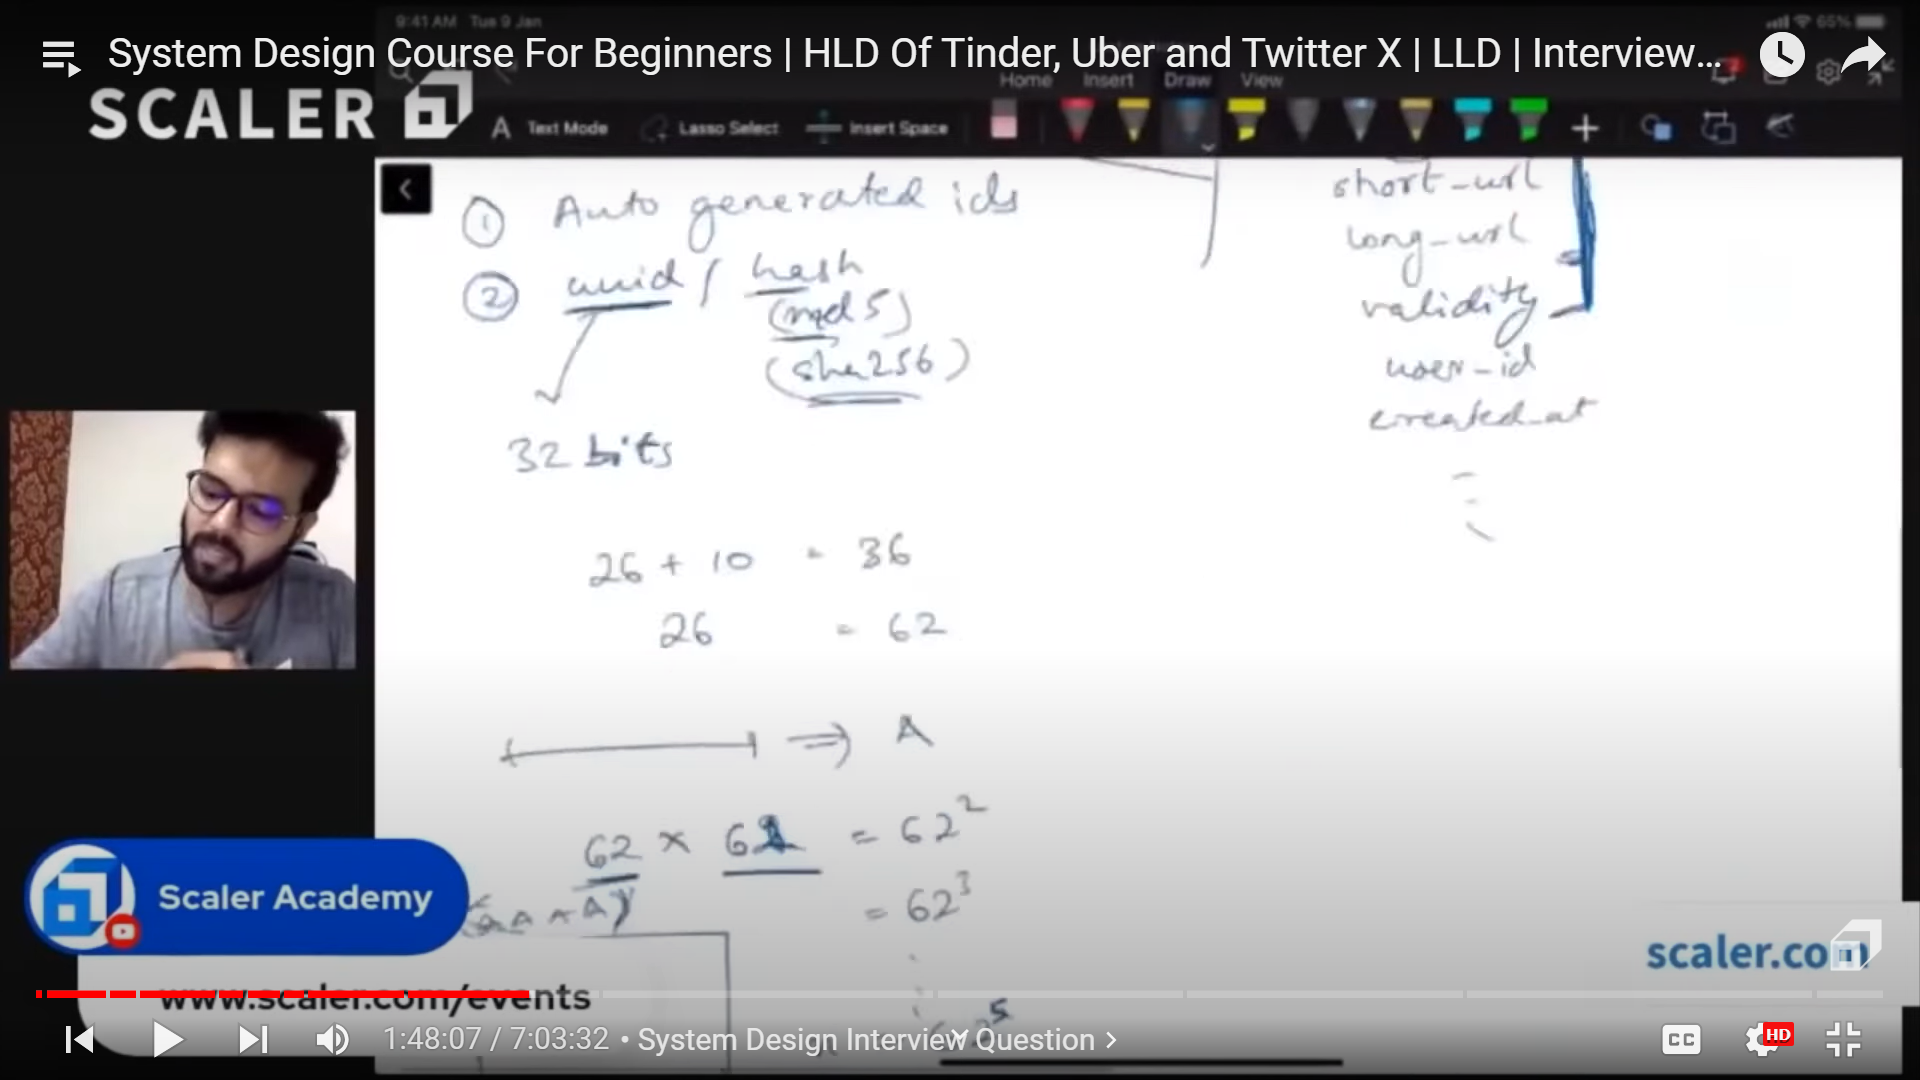 9:41 AM Tue 9 Jan
65%
System Design Course For Beginners | HLD Of Tinder, Uber and Twitter X | LLD | Interview...
Home Insert Draw View
SCALER
Text Mode Lasso Select Insert Space
① Auto generated ids
② uuid / hash
(md5)
(sha256)
32 bits
26 + 10 = 36
26 = 62
⇒ A
62 x 62 = 62²
= 62³
short_url
long_url
validity
user_id
created_at
Scaler Academy
scaler.com
www.scaler.com/events
1:48:07 / 7:03:32 • System Design Interview Question >
CC
HD